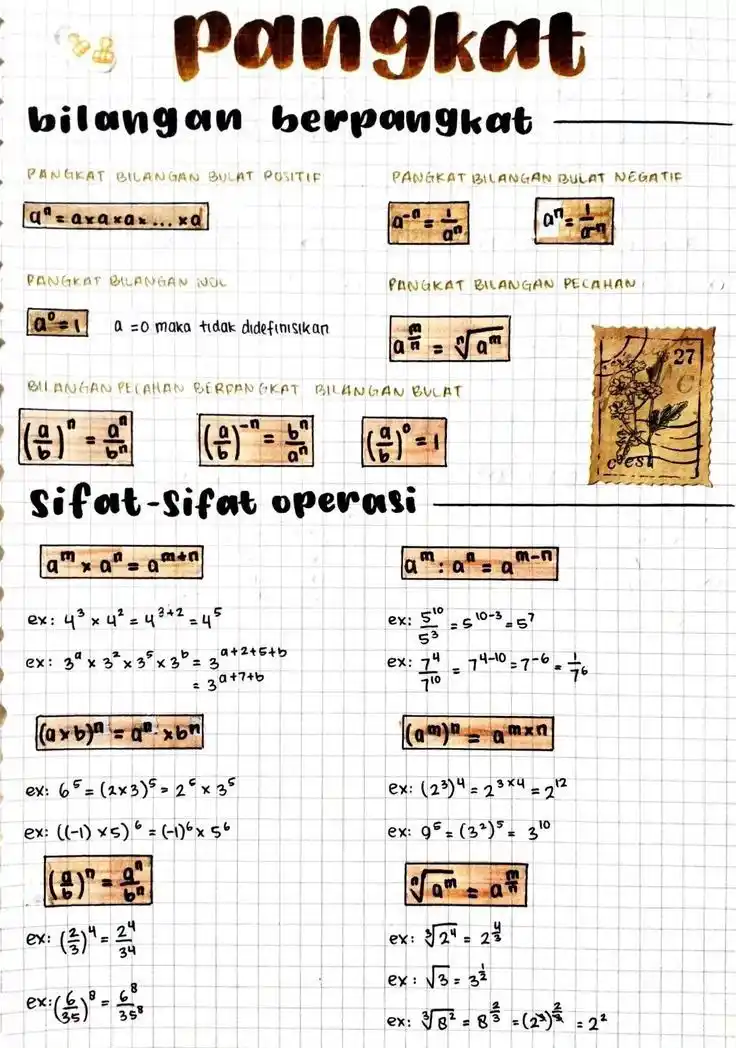 Pangkat
bilangan berpangkat
PANGKAT BILANGAN BULAT POSITIF
aⁿ = a x a x a x ... x a
PANGKAT BILANGAN BULAT NEGATIF
a⁻ⁿ = 1/aⁿ
aⁿ = 1/a⁻ⁿ
PANGKAT BILANGAN NOL
a⁰ = 1 a = 0 maka tidak didefinisikan
PANGKAT BILANGAN PECAHAN
a^(m/n) = ⁿ√(a^m)
BILANGAN PECAHAN BERPANGKAT BILANGAN BULAT
(a/b)ⁿ = aⁿ/bⁿ
(a/b)⁻ⁿ = bⁿ/aⁿ
(a/b)⁰ = 1
27
Sifat-Sifat operasi
a^m x a^n = a^(m+n)
ex: 4³ x 4² = 4^(3+2) = 4⁵
ex: 3^a x 3² x 3⁵ x 3^b = 3^(a+2+5+b)
= 3^(a+7+b)
a^m : a^n = a^(m-n)
ex: 5¹⁰/5³ = 5^(10-3) = 5⁷
ex: 7⁴/7¹⁰ = 7^(4-10) = 7⁻⁶ = 1/7⁶
(a x b)ⁿ = aⁿ x bⁿ
ex: 6⁵ = (2x3)⁵ = 2⁵ x 3⁵
ex: ((-1) x 5)⁶ = (-1)⁶ x 5⁶
(a^m)^n = a^(m x n)
ex: (2³)⁴ = 2^(3x4) = 2¹²
ex: 9⁵ = (3²)⁵ = 3¹⁰
(a/b)ⁿ = aⁿ/bⁿ
ex: (2/3)⁴ = 2⁴/34
ex: (6/35)⁸ = 6⁸/35⁸
ⁿ√(a^m) = a^(m/n)
ex: ³√(2⁴) = 2^(4/3)
ex: √3 = 3^(1/2)
ex: ³√(8²) = 8^(2/3) = (2³)^(2/3) = 2²